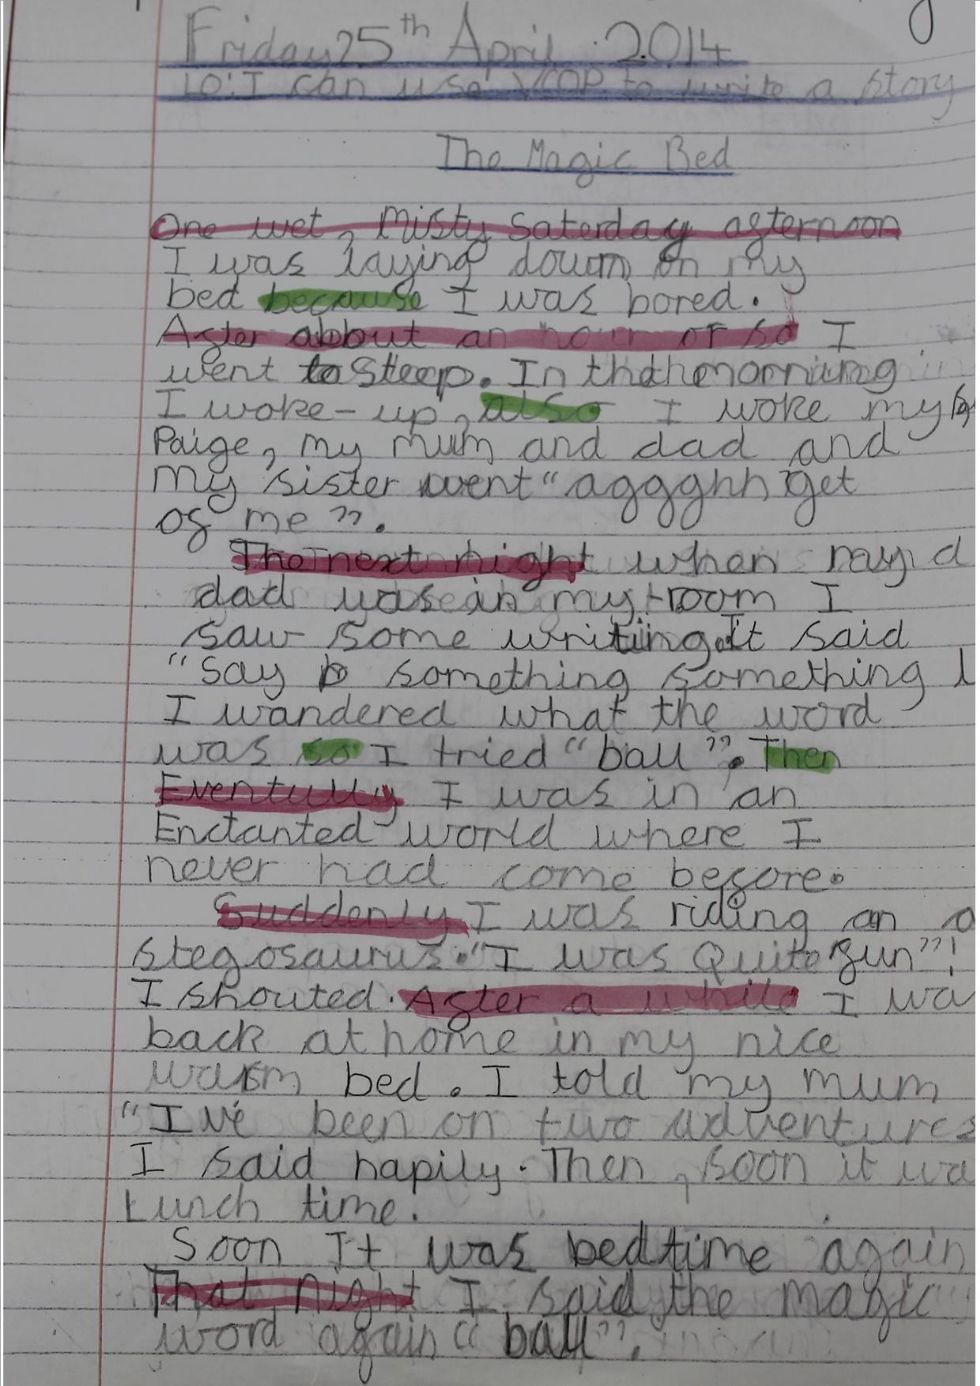 Friday 25th April 2014
LO: I can use VCOP to write a story
The Magic Bed
One wet, Misty Saterday afternoon
I was laying down on my
bed because I was bored.
After about an hour or so I
went to sleep. In the morning
I woke-up, also I woke my
Paige, my mum and dad and
my sister went "aggghh get
of me".
The next night when my d
dad was in my room I
saw some writing. It said
"say something something
I wandered what the word
was so I tried "ball". Then
Eventully I was in an
Enctanted world where I
never had come before.
Suddenly I was riding an a
stegosaurus. "I was Quite fun"!
I shouted. After a while I wa
back at home in my nice
warm bed. I told my mum
"I've been on two adventures
I said hapily. Then, soon it wa
Lunch time.
Soon It was bedtime again
That night I said the magic
word again "ball".